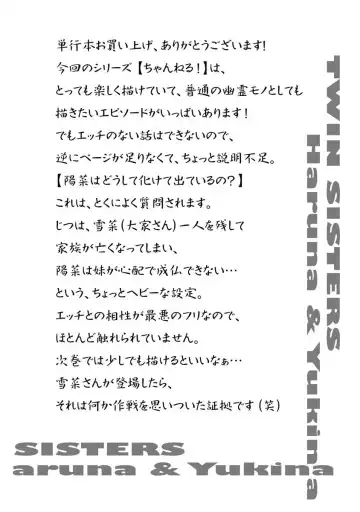 単行本お買い上げ、ありがとうございます!
今回のシリーズ【ちゃんねる!】は、
とっても楽しく描けていて、普通の幽霊モノとしても
描きたいエピソードがいっぱいあります!
でもエッチのない話はできないので、
逆にページが足りなくて、ちょっと説明不足。
【陽菜はどうして化けて出ているの?】
これは、とくによく質問されます。
じつは、雪菜(大家さん)一人を残して
家族が亡くなってしまい、
陽菜は妹が心配で成仏できない…
という、ちょっとヘビーな設定。
エッチとの相性が最悪のフリなので、
ほとんど触れられていません。
次巻では少しでも描けるといいなぁ…
雪菜さんが登場したら、
それは何か作戦を思いついた証拠です(笑)
TWIN SISTERS
Haruna & Yukina
SISTERS
aruna & Yukina